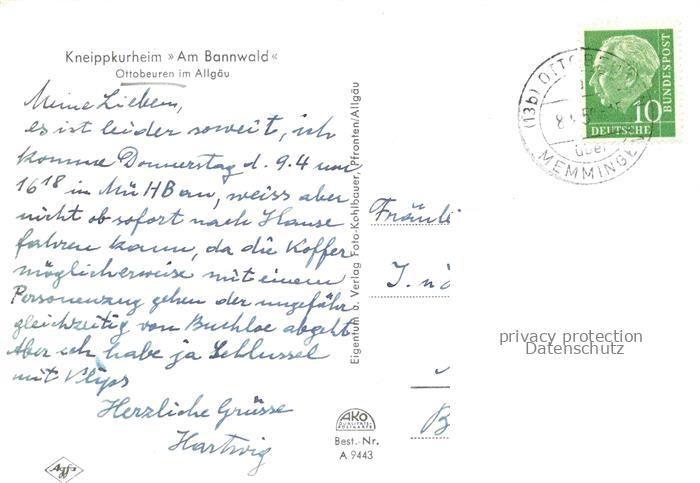 Kneippkurheim »Am Bannwald«
Ottobeuren im Allgäu
Meine Lieben,
es ist leider soweit, ich
komme Donnerstag d. 9.4 um
16 18 in Mü HB an, weiss aber
nicht ob sofort nach Hause
fahren kann, da die Koffer
möglicherweise mit einem
Personenzug gehen der ungefähr
gleichzeitig von Buchloe abgeht
Aber ich habe ja Schlüssel
mit
Herzliche Grüsse
Hartwig
Agfa
Eigentum u. Verlag Foto-Kohlbauer, Pfronten/Allgäu
AKO
QUALITÄTS-
POSTKARTE
Best.-Nr.
A 9443
(13b) OTTOBEUREN
über
MEMMINGEN
10
DEUTSCHE
BUNDESPOST
Fräuli
J. nö
B
privacy protection
Datenschutz